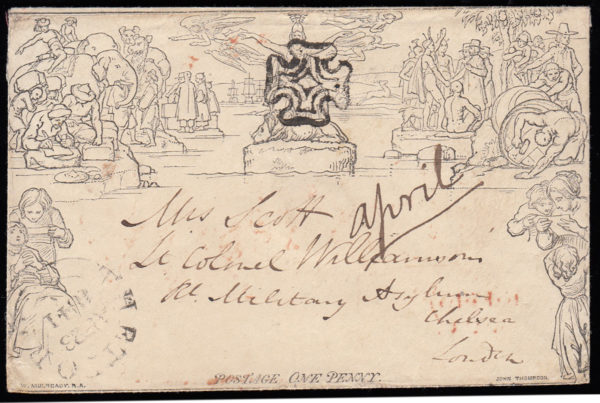 Mrs Scott
april
Lt Colonel Williamson's
Rl Military Asylum
Chelsea
London
POSTAGE ONE PENNY.
W. MULREADY, R.A.
JOHN THOMPSON.